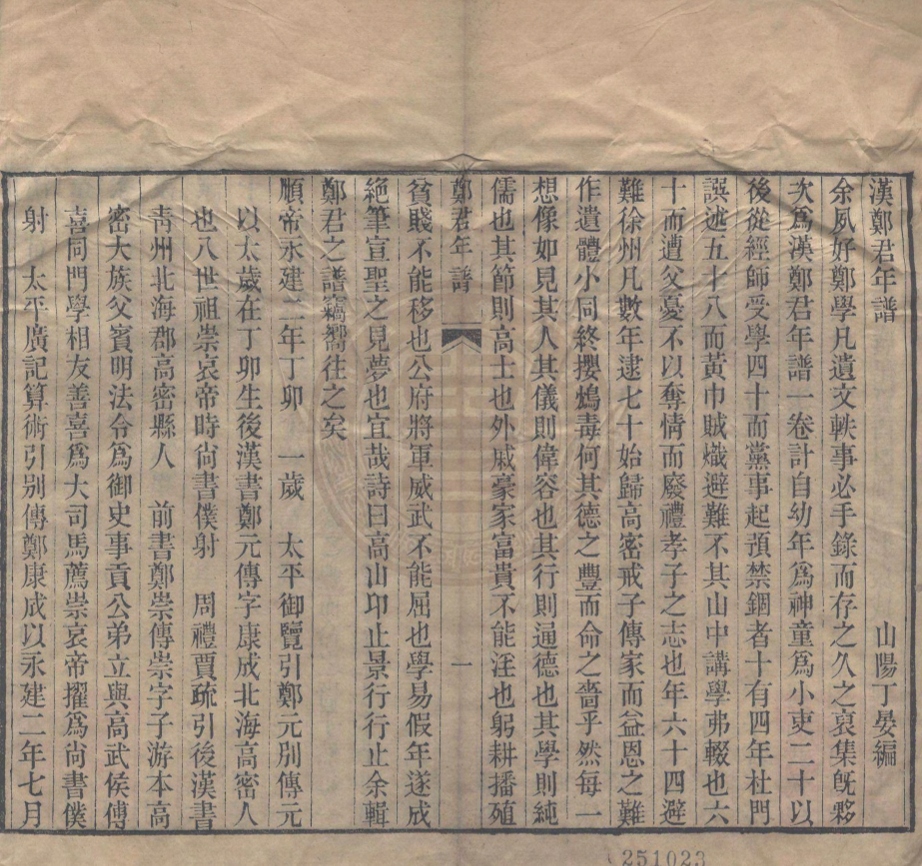 漢鄭君年譜
山陽丁晏編
余夙好鄭學凡遺文軼事必手錄而存之久之裒集旣夥
次爲漢鄭君年譜一卷計自幼年爲神童爲小吏二十以
後從經師受學四十而黨事起預禁錮者十有四年杜門
誤述五十八而黃巾賊熾避難不其山中講學弗輟也六
十而遭父憂不以奪情而廢禮孝子之志也年六十四避
難徐州凡數年逮七十始歸高密戒子傳家而益恩之難
作遺體小同終攖鴆毒何其德之豐而命之嗇乎然每一
想像如見其人其儀則偉容也其行則通德也其學則純
儒也其節則高士也外戚豪家富貴不能淫也躬耕播殖
鄭君年譜
一
貧賤不能移也公府將軍威武不能屈也學易假年遂成
絶筆宣聖之見夢也宜哉詩曰高山卬止景行行止余輯
鄭君之譜竊嚮往之矣
順帝永建二年丁卯 一歲 太平御覽引鄭元別傳元
以太歲在丁卯生後漢書鄭元傳字康成北海高密人
也八世祖崇哀帝時尙書僕射 周禮賈疏引後漢書
靑州北海郡高密縣人 前書鄭崇傳崇字子游本高
密大族父賓明法令爲御史事貢公弟立與高武侯傅
喜同門學相友善喜爲大司馬薦崇哀帝擢爲尙書僕
射 太平廣記算術引别傳鄭康成以永建二年七月
251023